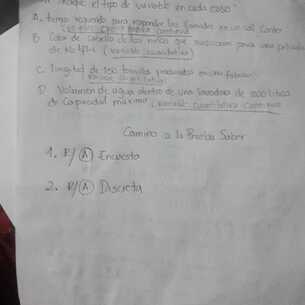 Indique el tipo de variable en cada caso
A. tiempo requerido para responder las llamadas en un call Center
B. Color de cabello de los niños que audicionan para una película
de Netflix (variable cualitativa)
C. longitud de 150 tornillos producidos en una fabrica
D. Volumen de agua dentro de una lavadora de 200 litros
de Capacidad máxima (variable cuantitativa continua
Camino a la Prueba Saber
1. R/ (A) Encuesta
2. R/ (A) Discreta